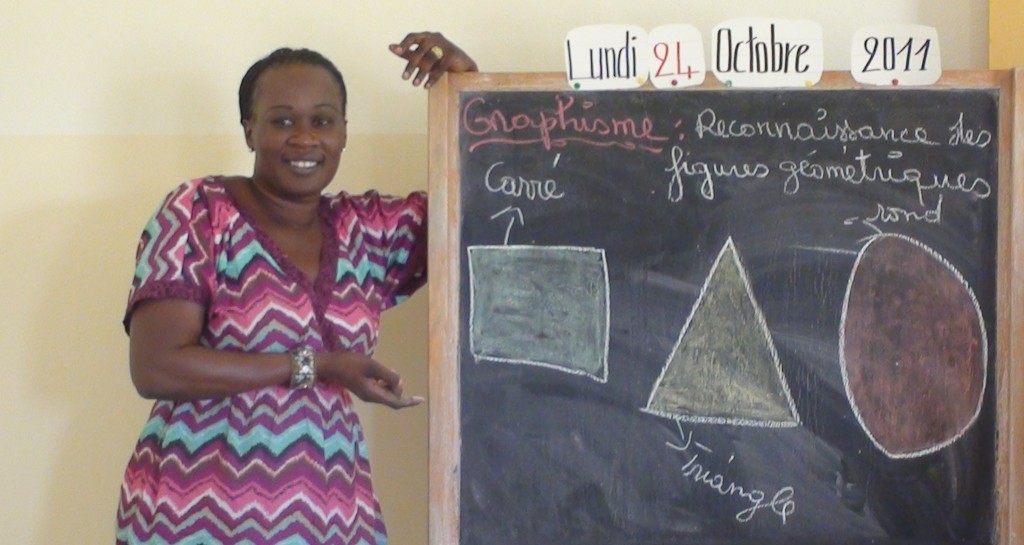 Lundi 24 Octobre 2011
Graphisme : Reconnaissance des
figures géométriques
Carré
rond
triangle